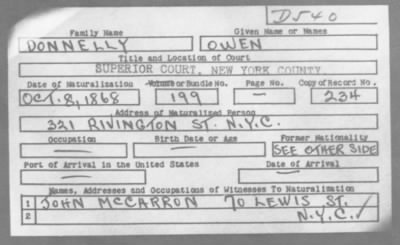 D540
Family Name Given Name or Names
DONNELLY OWEN
Title and Location of Court
SUPERIOR COURT, NEW YORK COUNTY
Date of Naturalization Volume or Bundle No. Page No. Copy of Record No.
OCT. 8, 1868 199 — 234
Address of Naturalized Person
321 RIVINGTON ST. N.Y.C.
Occupation Birth Date or Age Former Nationality
— — SEE OTHER SIDE
Port of Arrival in the United States Date of Arrival
— —
Names, Addresses and Occupations of Witnesses To Naturalization
1 JOHN MCCARRON 70 LEWIS ST.
2 N.Y.C.